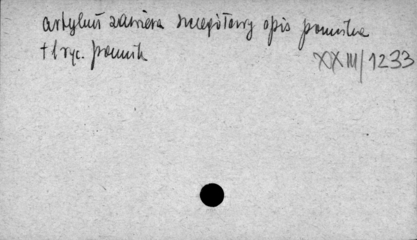 artykuł zawiera szczegółowy opis pomnika
+ 1 ryc. pomnik
XXIII/1233